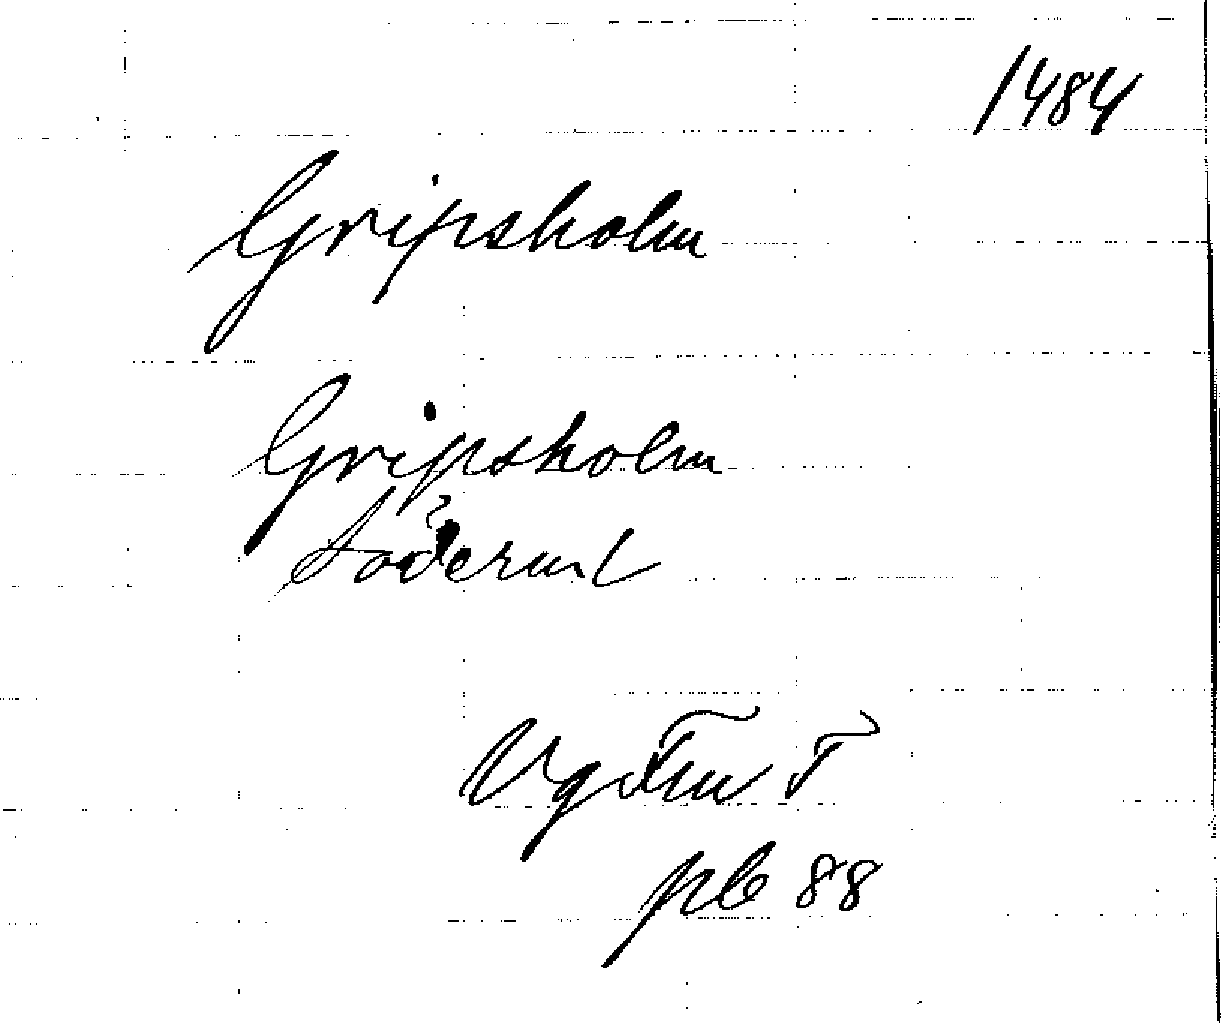 1484
Gripsholm
Gripsholm
Söderml
T
pb 88